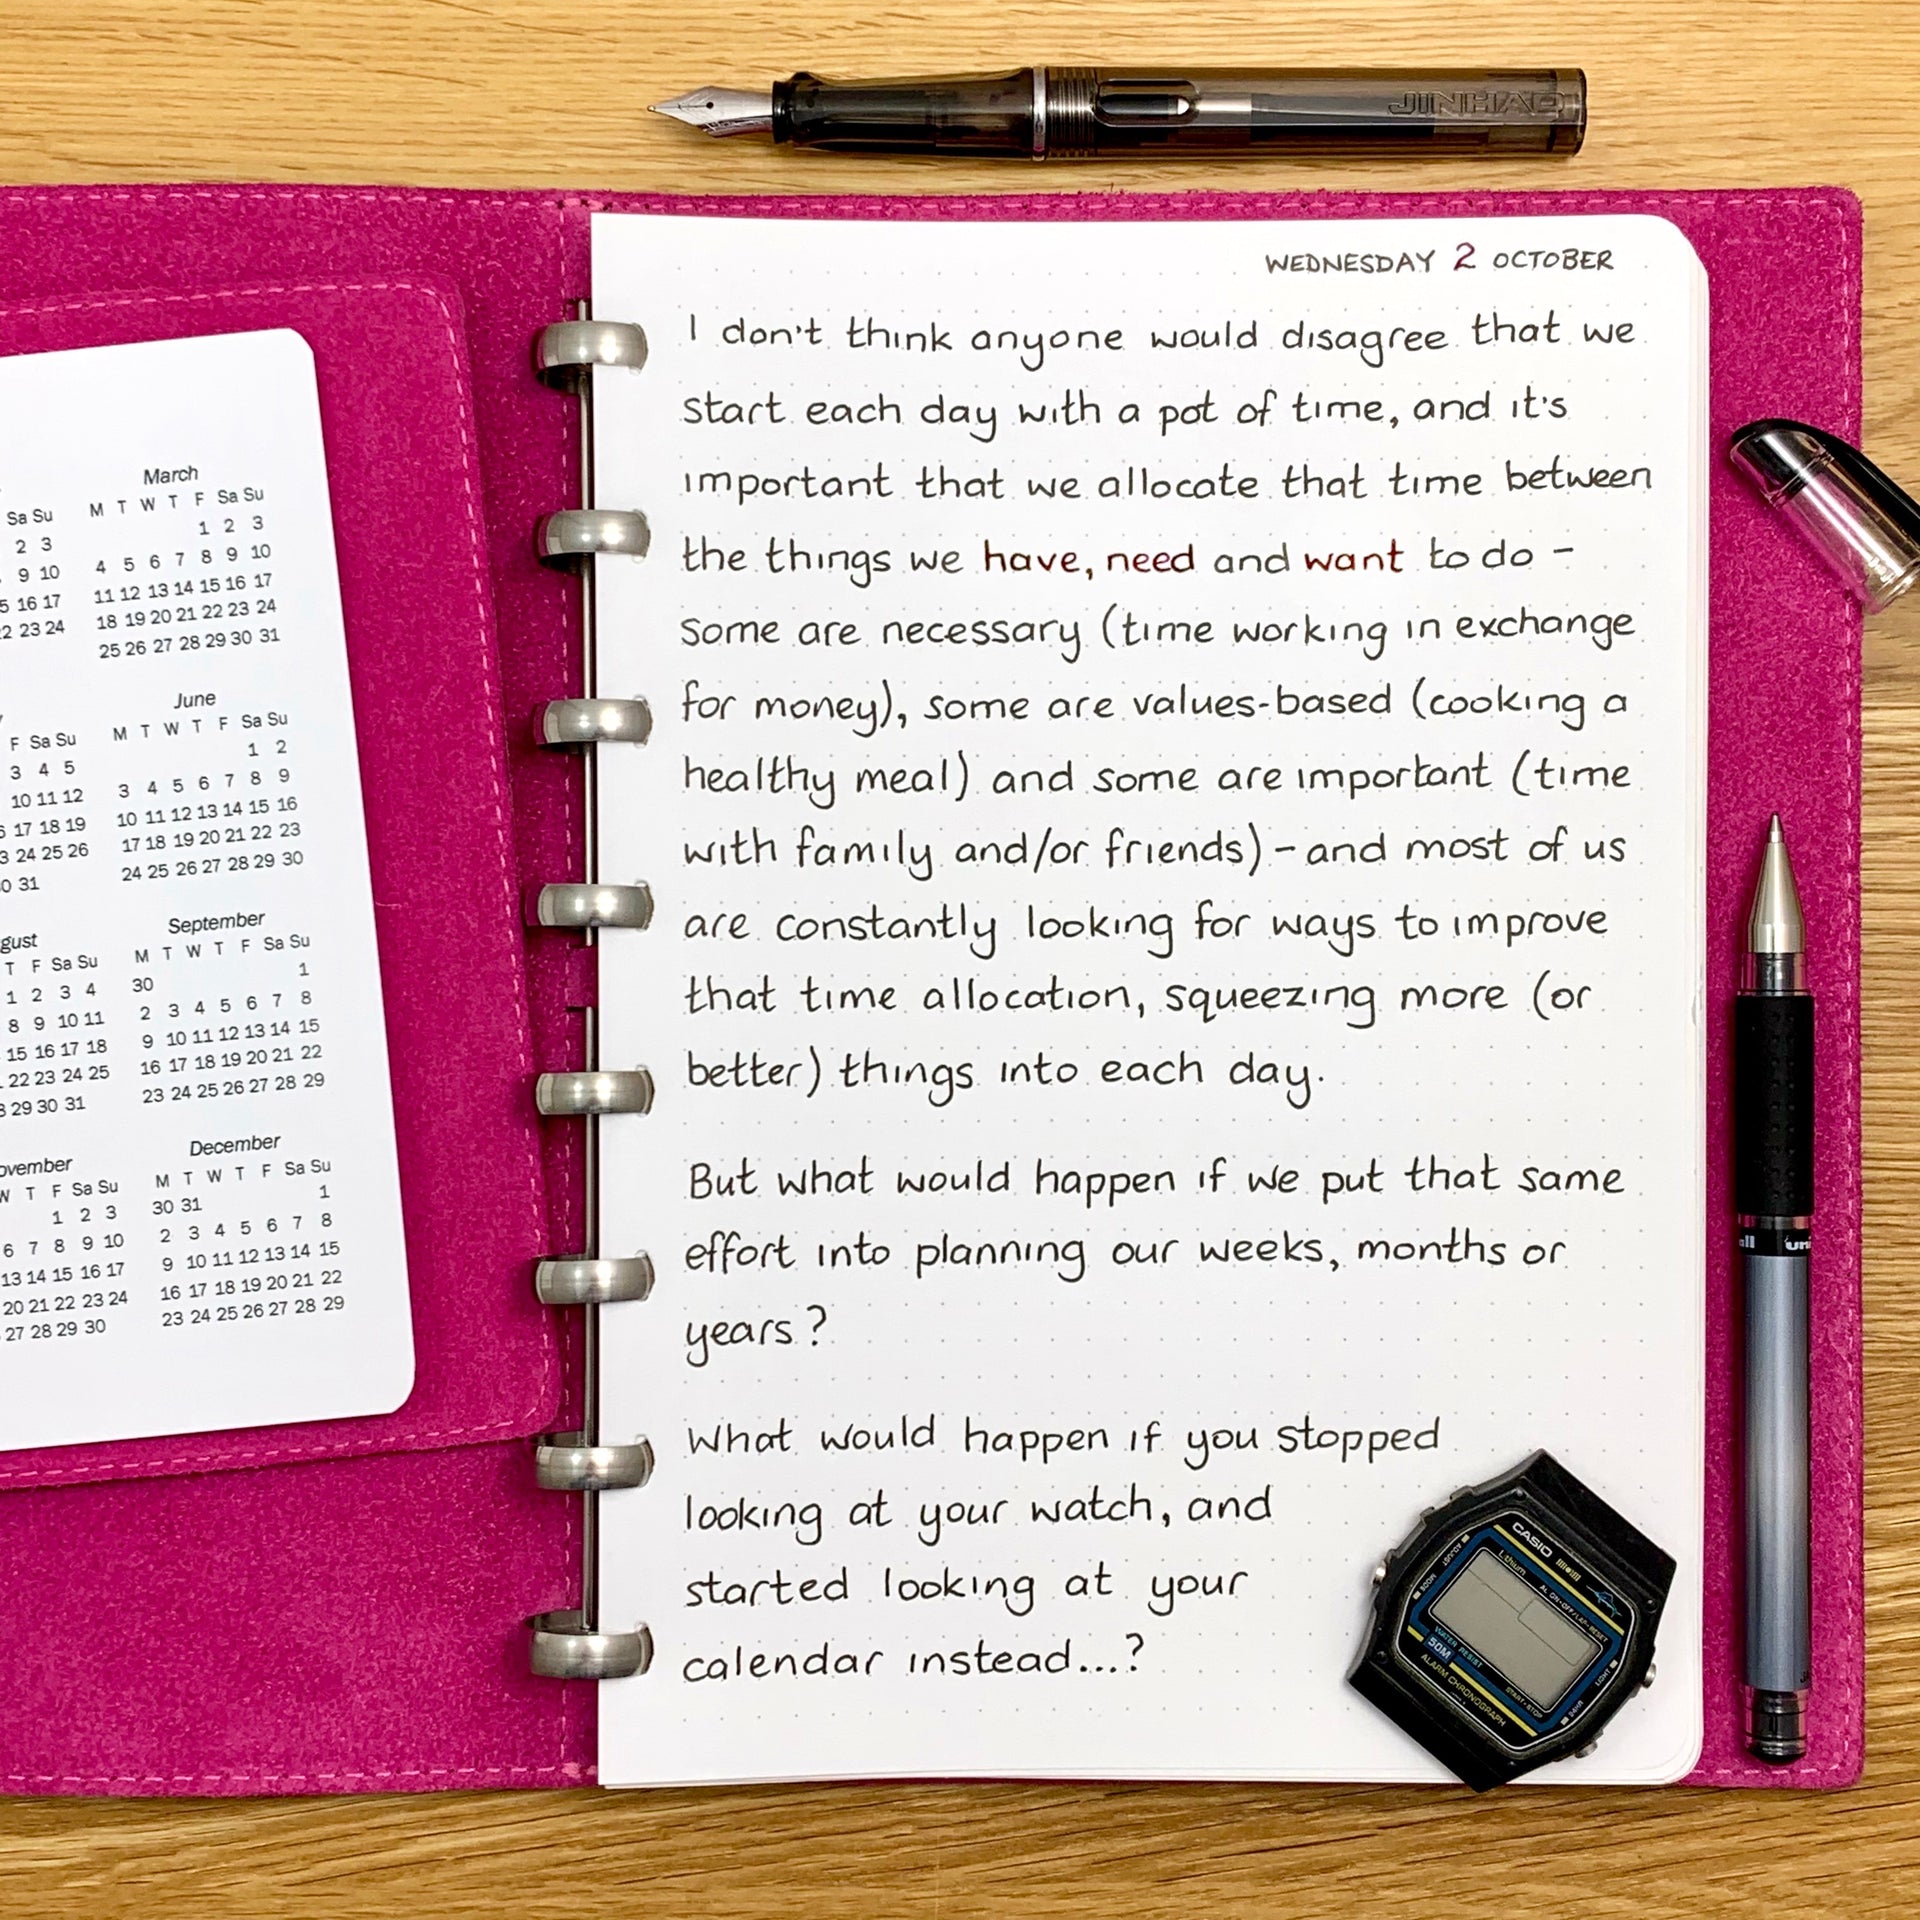 JINHAO
WEDNESDAY 2 OCTOBER
I don't think anyone would disagree that we
start each day with a pot of time, and it's
important that we allocate that time between
the things we have, need and want to do –
some are necessary (time working in exchange
for money), some are values-based (cooking a
healthy meal) and some are important (time
with family and/or friends) – and most of us
are constantly looking for ways to improve
that time allocation, squeezing more (or
better) things into each day.
But what would happen if we put that same
effort into planning our weeks, months or
years?
What would happen if you stopped
looking at your watch, and
started looking at your
calendar instead...?
Sa Su
2 3
9 10
5 16 17
22 23 24
March
M T W T F Sa Su
1 2 3
4 5 6 7 8 9 10
11 12 13 14 15 16 17
18 19 20 21 22 23 24
25 26 27 28 29 30 31
F Sa Su
3 4 5
10 11 12
6 17 18 19
3 24 25 26
0 31
June
M T W T F Sa Su
1 2
3 4 5 6 7 8 9
10 11 12 13 14 15 16
17 18 19 20 21 22 23
24 25 26 27 28 29 30
gust
T F Sa Su
1 2 3 4
8 9 10 11
15 16 17 18
22 23 24 25
29 30 31
September
M T W T F Sa Su
30 1
2 3 4 5 6 7 8
9 10 11 12 13 14 15
16 17 18 19 20 21 22
23 24 25 26 27 28 29
ovember
W T F Sa Su
1 2 3
6 7 8 9 10
13 14 15 16 17
20 21 22 23 24
27 28 29 30
December
M T W T F Sa Su
30 31 1
2 3 4 5 6 7 8
9 10 11 12 13 14 15
16 17 18 19 20 21 22
23 24 25 26 27 28 29
all uni
CASIO
Lithium
AL ON•OFF/LAP•RESET
ADJUST
MODE
WATER RESIST
50M
ALARM CHRONOGRAPH
START•STOP
LIGHT
24HR